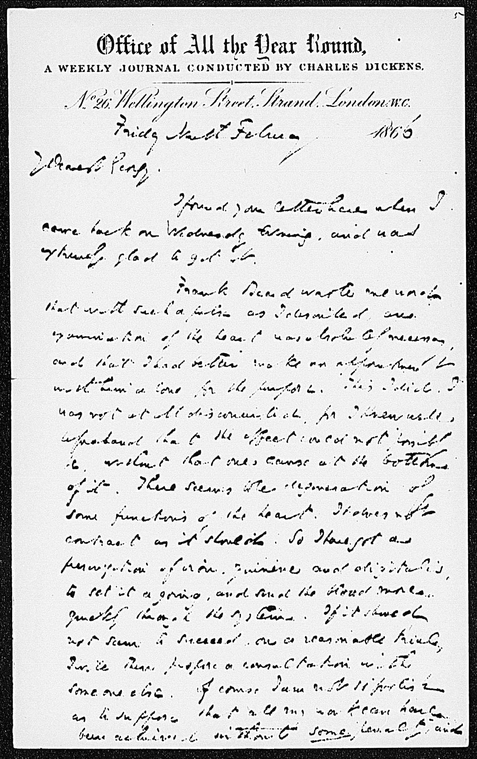 5
Office of All the Year Round,
A WEEKLY JOURNAL CONDUCTED BY CHARLES DICKENS.
No. 26, Wellington Street, Strand, London, W.C.
Friday Ninth February 1866
My Dearest Georgy.
I found your letter here when I
came back on Wednesday Evening, and was
extremely glad to get it.
Frank Beard wrote me word
that with such a pulse as I described, an
examination of the heart was absolutely necessary,
and that I had better make an appointment to
meet him alone for the purpose. This I did. I
was not at all disconcerted, for I knew well
beforehand that the effect could not possibly
be, without that one cause at the bottom
of it. There seems to be degeneration of
some functions of the heart. It does not
contract as it should. So I have got a
prescription of iron, quinine and digitalis,
to set it a going, and send the blood more
quickly through the system. If it should
not seem to succeed, on a reasonable trial,
I will then propose a consultation with
someone else. Of course I am not so foolish
as to suppose that all my work can have
been achieved without some penalty, and